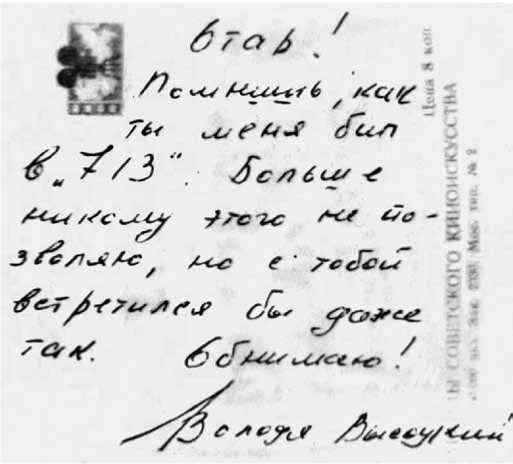 Отар!
Помнишь, как
ты меня бил
в „713“. Больше
никому этого не по-
зволяю, но с тобой
встретился бы даже
так. Обнимаю!
Володя Высоцкий
Цена 8 коп
Ы СОВЕТСКОГО КИНОИСКУССТВА
Зак. 2331 Мос. тип. № 2